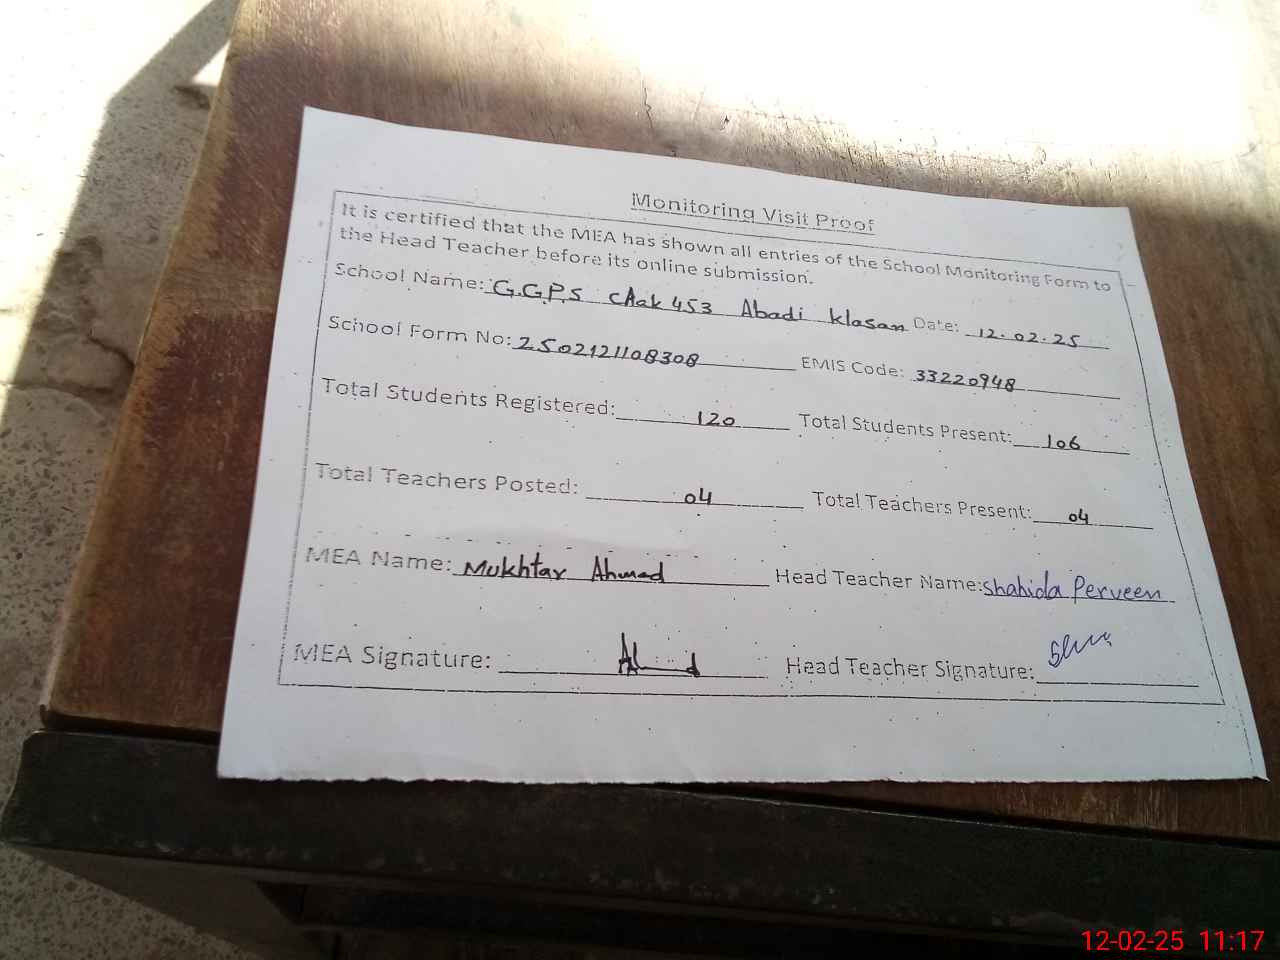 Monitoring Visit Proof
It is certified that the MEA has shown all entries of the School Monitoring Form to
the Head Teacher before its online submission.
School Name: G.G.P.S chak 453 Abadi klasan Date: 12.02.25
School Form No: 2502121108308 EMIS Code: 33220948
Total Students Registered: 120 Total Students Present: 106
Total Teachers Posted: 04 Total Teachers Present: 04
MEA Name: Mukhtar Ahmad Head Teacher Name: Shahida Perveen
MEA Signature: Head Teacher Signature:
12-02-25 11:17